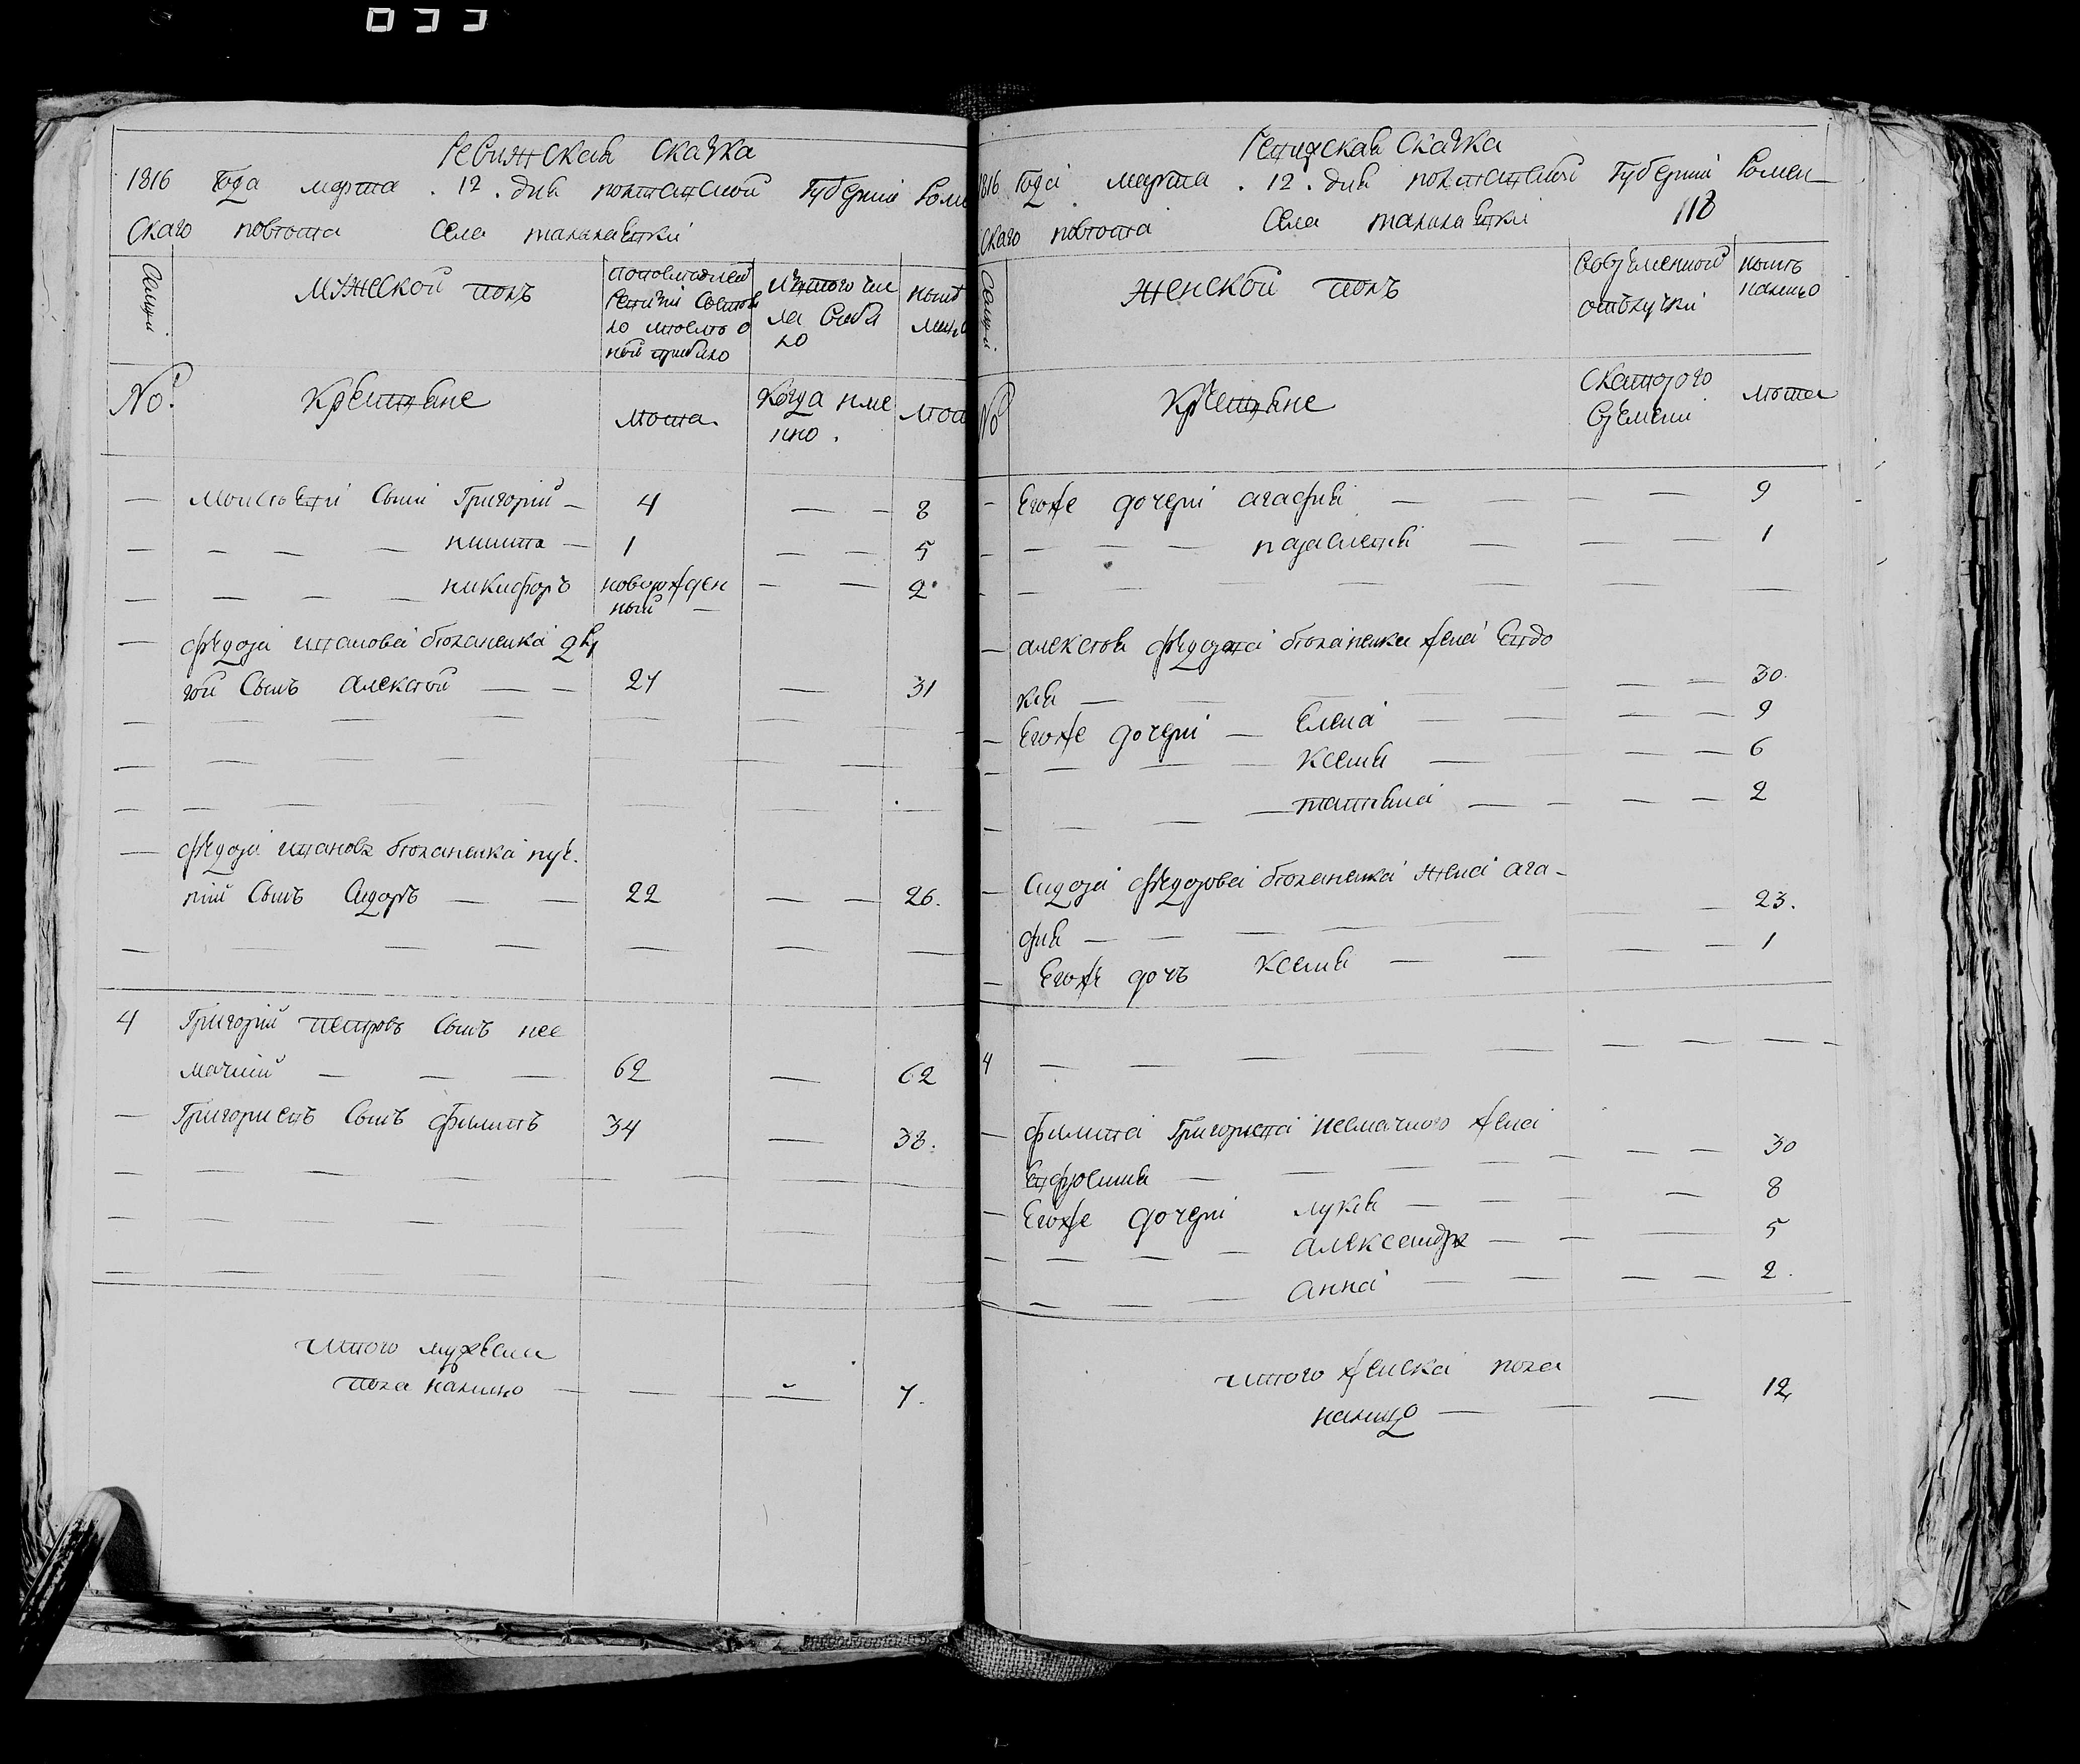 Ревижская скаска
1816 года марта . 12 . дня полтавской Губернии Роме
скаго повета села талалаевки
Семьи
мужеской полъ
попоследней ревизии состоя
ло илете о
ной прибыло
изтого чи
сла выбы
ло
ныне
No.
крестьяне
лета.
Когда име
нно .
лета
— Моисеева сыни Григорий — 4 — — 8
— — — — никита — 1 — — 5
— — — — никифоръ новорожден
ный — — — 2
— федора иванова бюланенка дру
гой сынъ алексей — — 24 — 31
— федора иванова бюланенка
сынъ Сидоръ — — 22 — — 26.
4 Григорий петровъ сынъ нее
мачний — — — 62 — 62
— Григориевъ сынъ филипъ 34 — 38.
итого мужеска
пола налицо — — — 7.
Ревижская скаска
1816 года марта . 12 . дня полтавской Губернии Ромен
скаго повета села талалаевки 118
Семьи
женской полъ
вовременной
отлучки
ныне
налицо
No
крестьяне
скоторого
времени
лета
— Егоже дочери агафия — — — — 9
— — — — параскевия — — — 1
— алексея федорова бюланенка жена Евдо
кия — — — 30.
— Егоже дочери — Елена — — — — 9
— — — — ксения — — — 6
— — — — татияна — — — — 2
— Сидора федорова бюланенка жена ага-
фия — — — — — 23.
— Егоже дочъ ксения — — — — 1
4 — — — — — — — — —
— филипа Григориева неемачного жена
Евфросиния — — — 30
— Егоже дочери лукия — — — — 8
— — — — александра — — — 5
— — — — анна — — — — 2.
итого женска пола
налицо — — — — 12